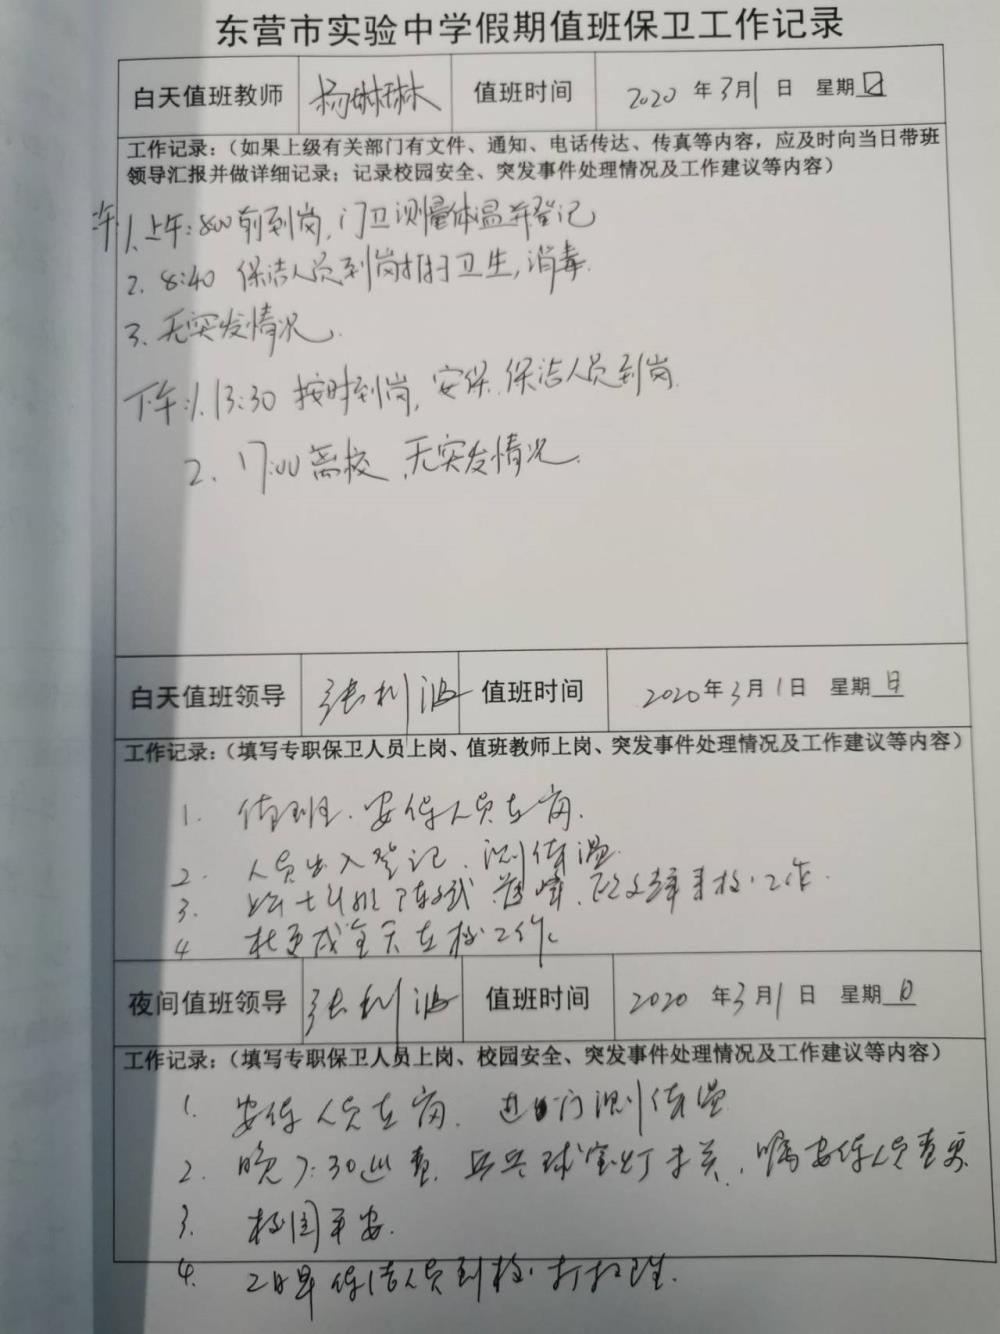 东营市实验中学假期值班保卫工作记录
白天值班教师 杨琳琳 值班时间 2020年3月1日 星期日
工作记录：（如果上级有关部门有文件、通知、电话传达、传真等内容，应及时向当日带班
领导汇报并做详细记录；记录校园安全、突发事件处理情况及工作建议等内容）
1、上午：8:00前到岗，门卫测量体温并登记
2、8:40 保洁人员到岗打扫卫生，消毒.
3、无突发情况.
下午：1、13:30 按时到岗，安保、保洁人员到岗.
2、17:00离校，无突发情况.
白天值班领导 张利波 值班时间 2020年3月1日 星期日
工作记录：（填写专职保卫人员上岗、值班教师上岗、突发事件处理情况及工作建议等内容）
1. 值班、安保人员在岗.
2. 人员出入登记、测体温.
3. 来校工作.
4 全天在校工作.
夜间值班领导 张利波 值班时间 2020年3月1日 星期日
工作记录：（填写专职保卫人员上岗、校园安全、突发事件处理情况及工作建议等内容）
1. 安保人员在岗. 进门测体温
2. 晚7:30巡查，乒乓球室灯未关，嘱安保人员查
3. 校园平安.
4. 2日早保洁人员到校打扫